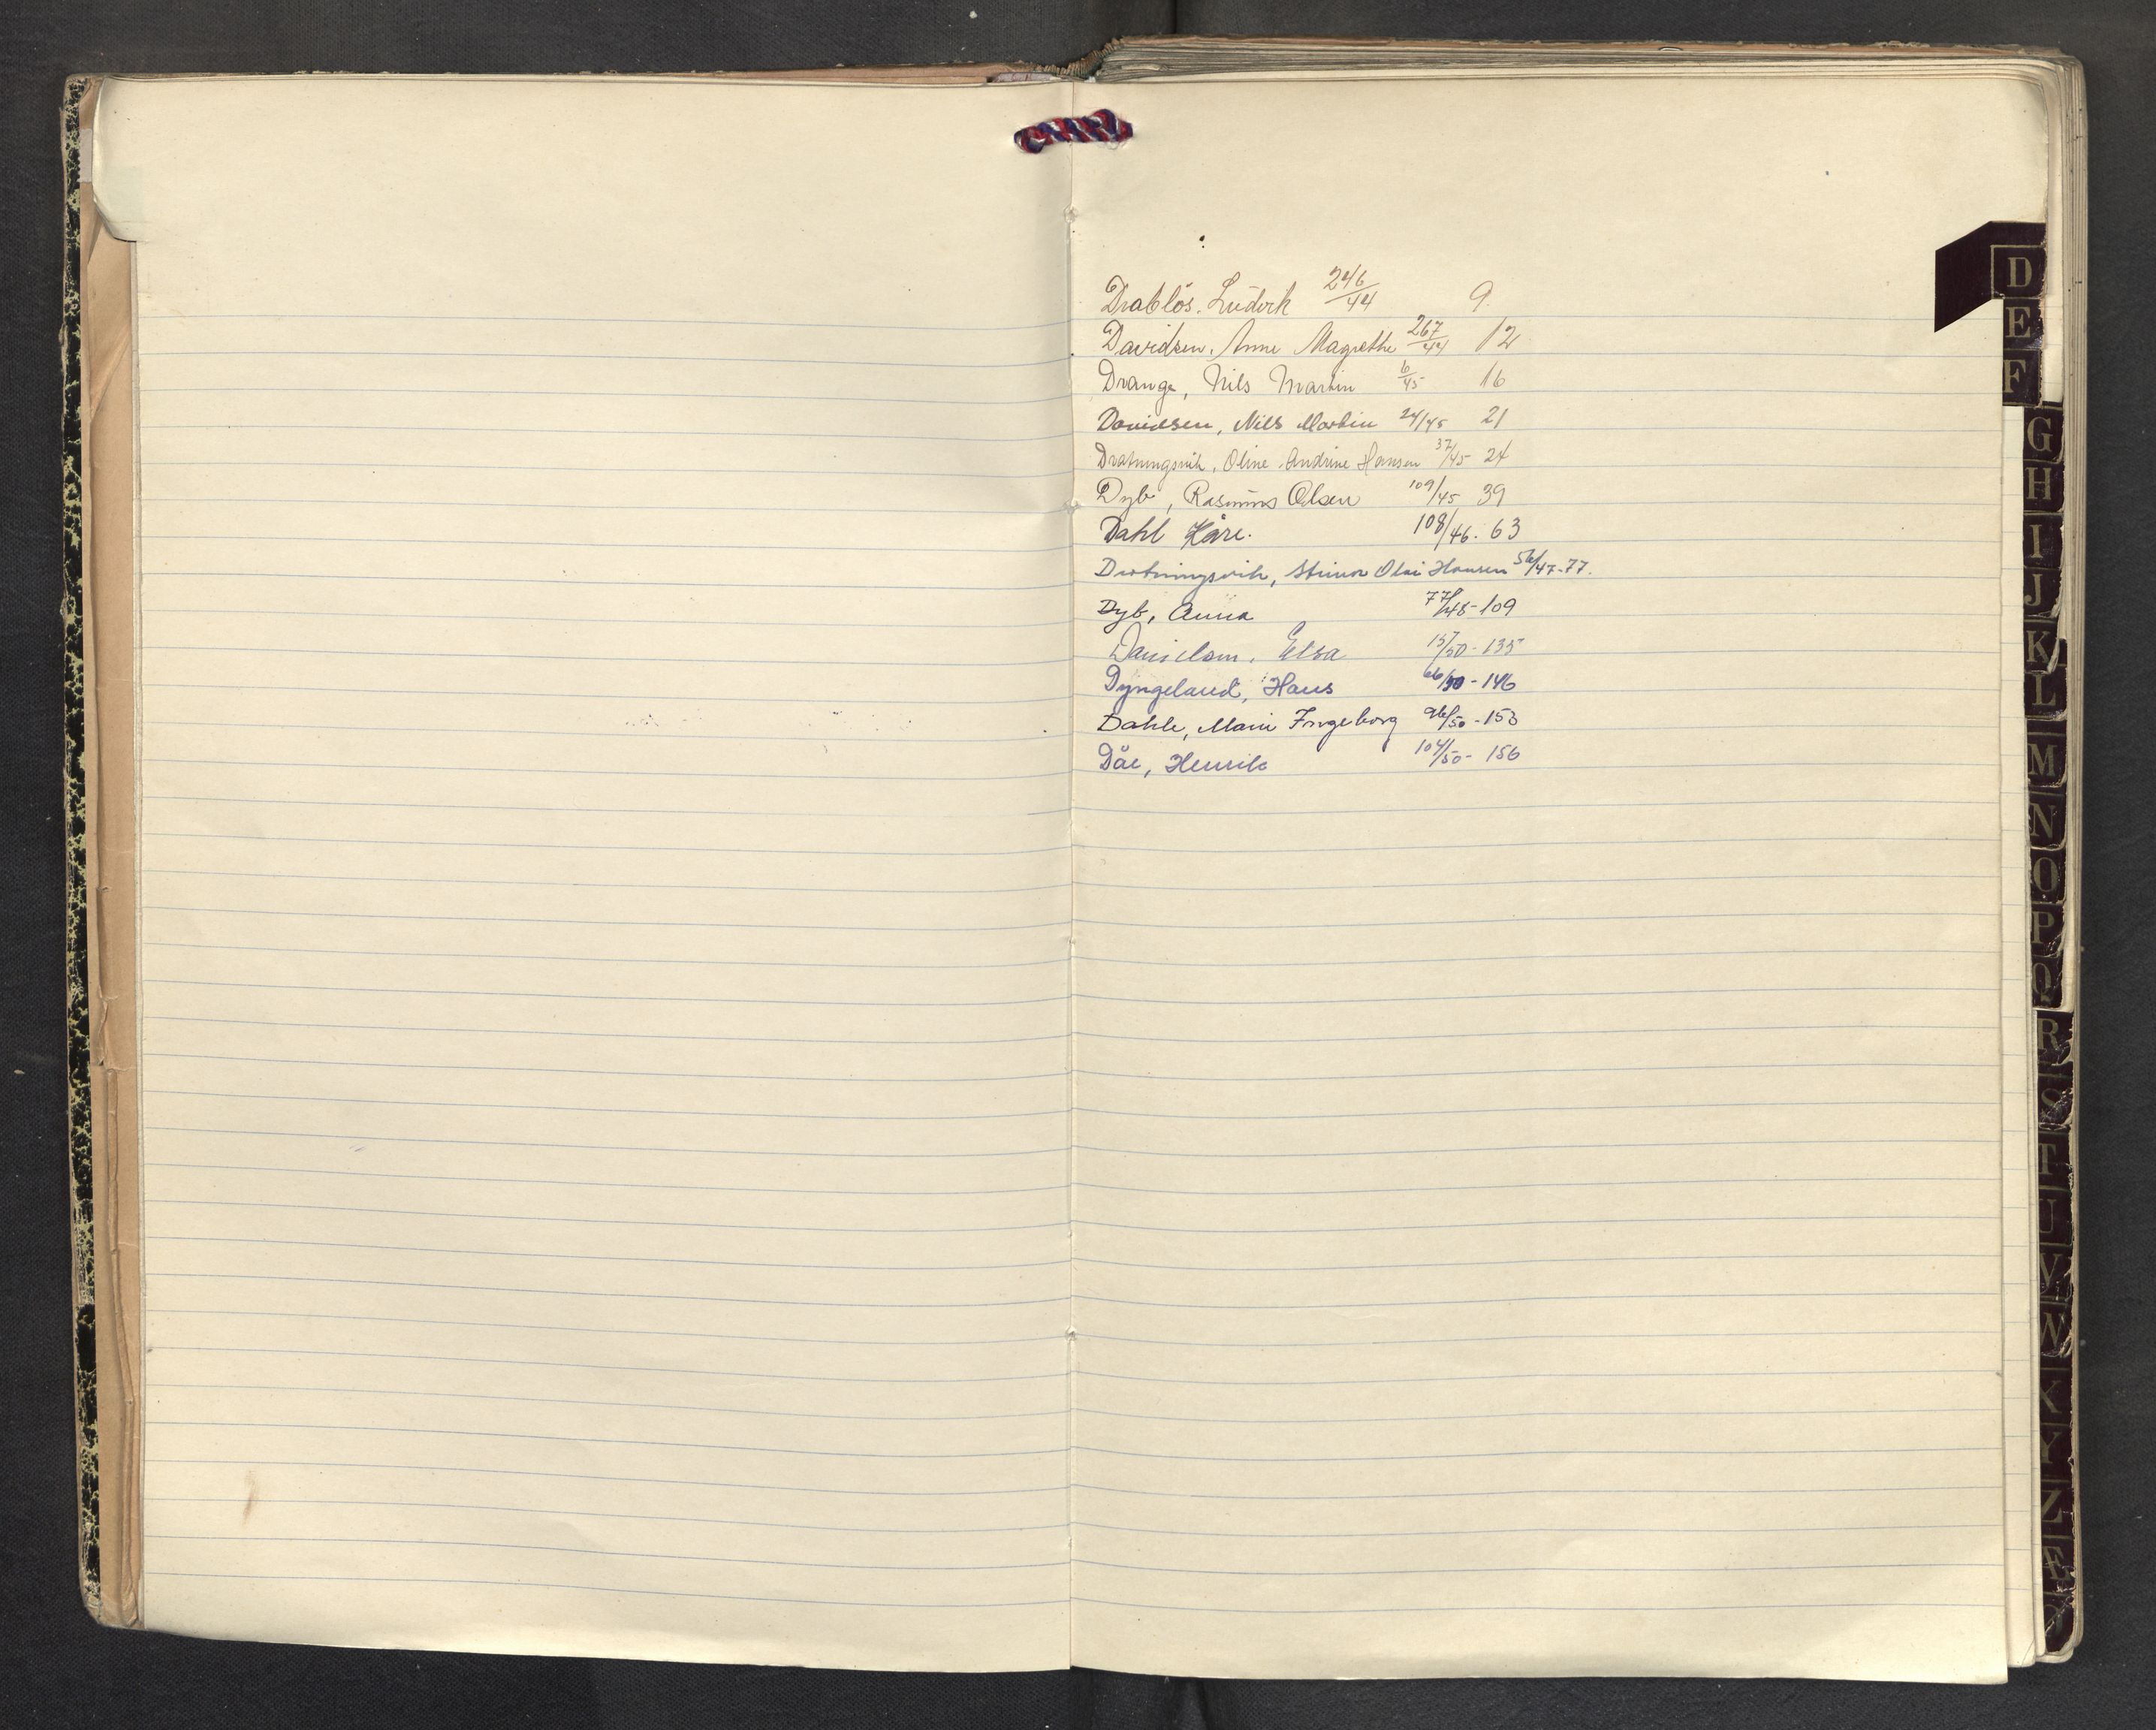 Drabløs. Lüdvik 246/44 9.
Davidsen. Anne Magrethe 267/44 12
Drange, Nils Martin 6/45 16
Davidsen, Nils Martin 24/45 21
Drotningsvik, Oline Andrine Hansen 37/45 24
Dyb, Rasmüs Olsen 109/45 39
Dahl Kåre. 108/46. 63
Drotningsvik, Olai Hansen 56/47-77.
Dyb, Anna 77/48-109
Danielsen, Elsa 15/50-135
Dyngeland, Hans 66/50-146
Dahle, Marie Ingeborg 96/50-153
Dåe, Henrik 104/50-156
D
E
F
G
H
I
J
K
L
M
N
O
P
Q
R
S
T
U
V
W
X
Y
Z
Æ